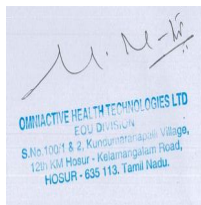 M. M
OMNIACTIVE HEALTH TECHNOLOGIES LTD
EOU DIVISION
S.No.100/1 & 2, Kundumaranapalli Village,
12th KM Hosur - Kelamangalam Road,
HOSUR - 635 113. Tamil Nadu.